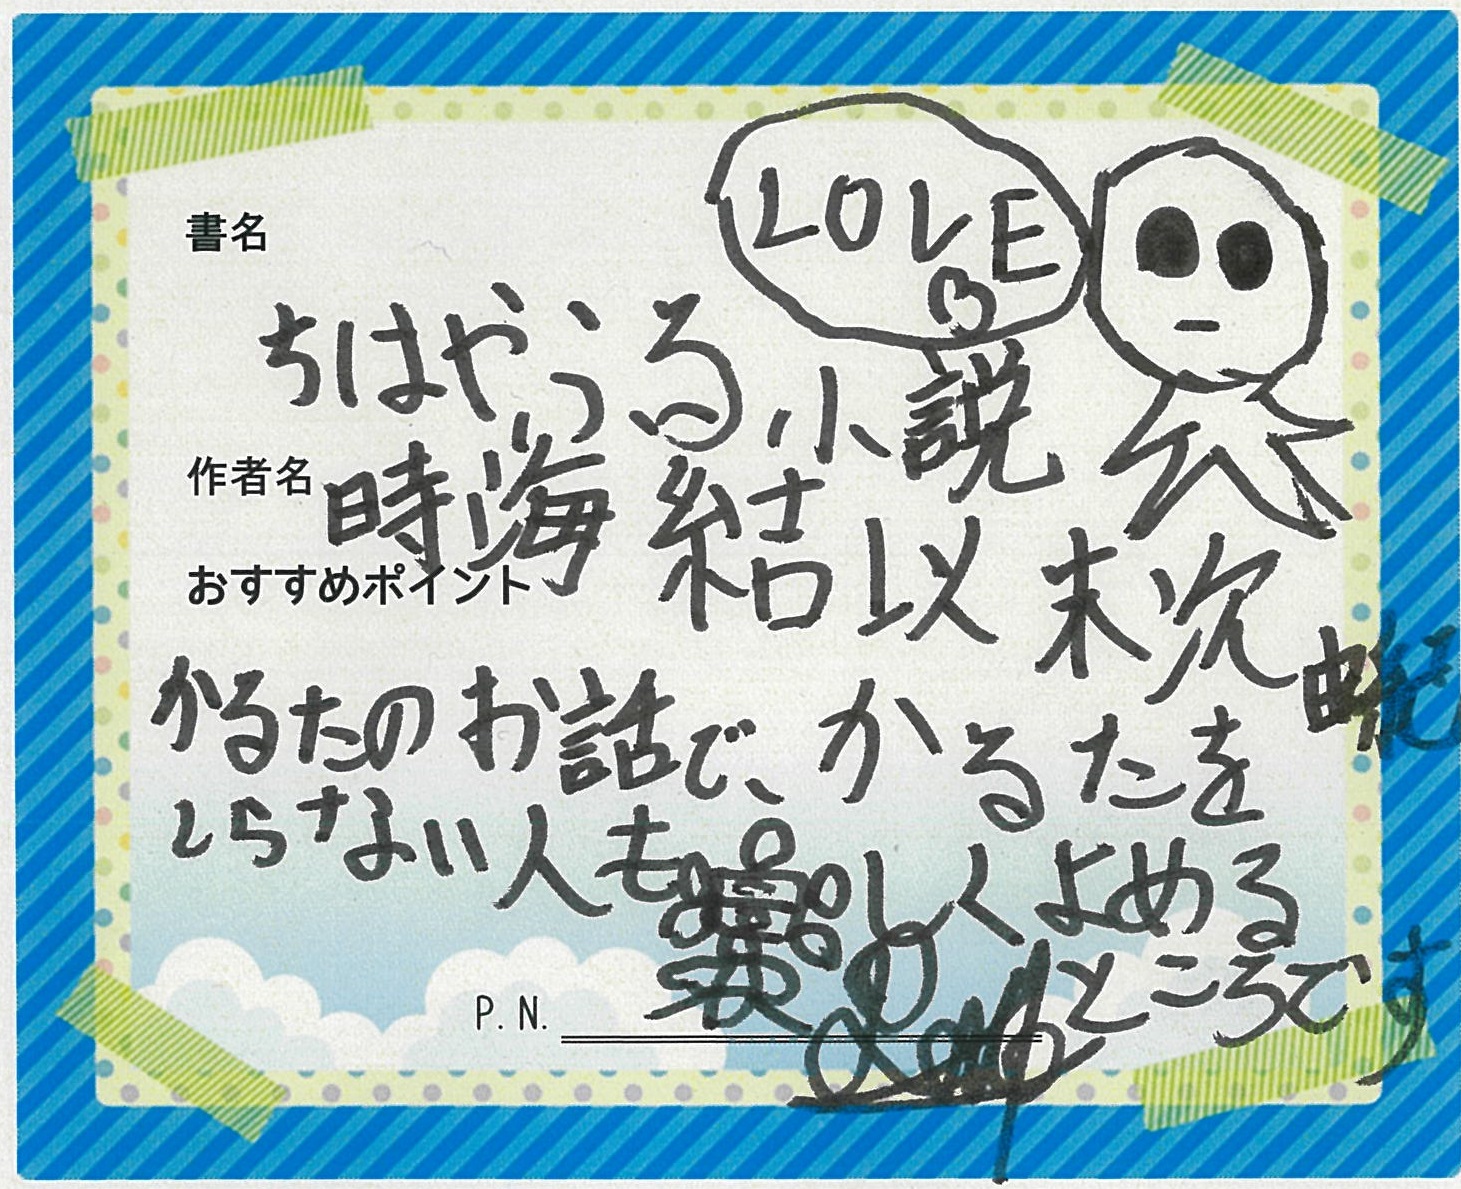 LOVE
書名
ちはやふる小説
作者名
時海結以 末次由紀
おすすめポイント
かるたのお話で、かるたを
しらない人も楽しくよめる
ところです
P.N.